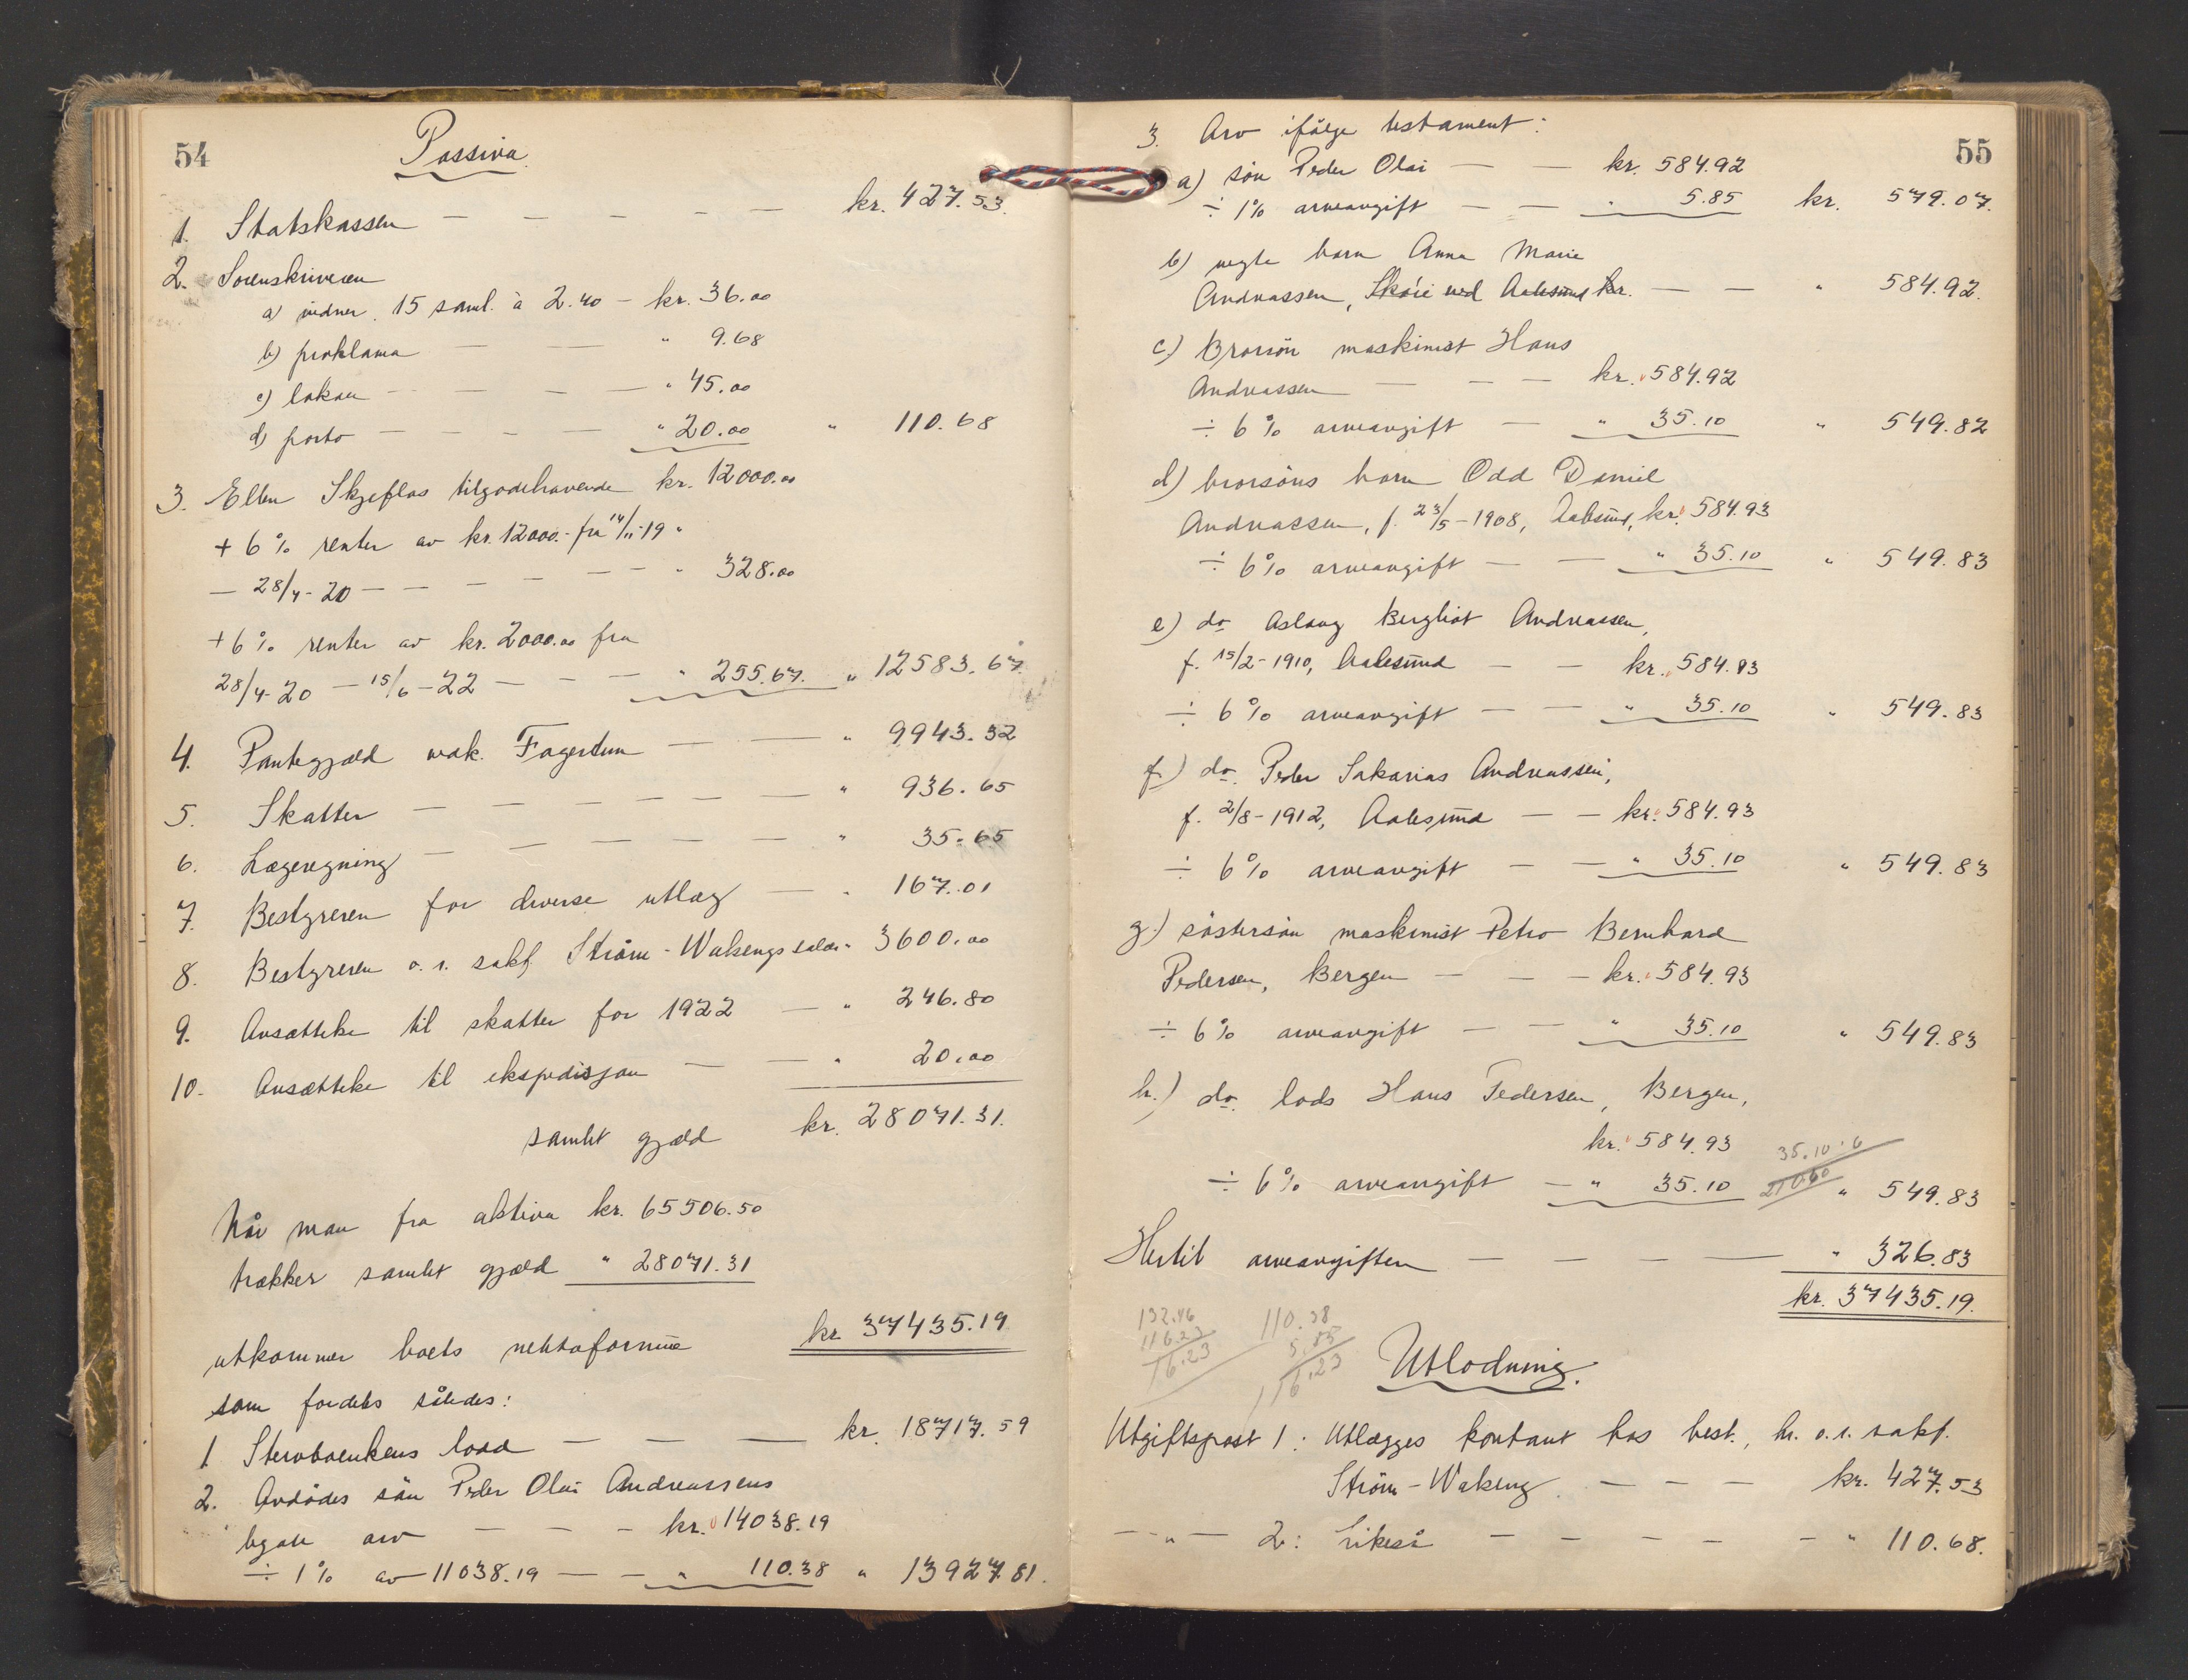 54
Passiva
1. Statskassen — — — — — kr. 427.53.
2. Sorenskriveren
a) vidner, 15 saml. à 2.40 – kr. 36.00
b) proklama — — " 9.68
c) lokale — — — — " 45.00
d) porto — — — — " 20.00 " 110.68
3. Ellen Skjeflos tilgodehavende kr. 12000.00
+ 6 % renter av kr. 12000.- fra 14/11-19
— 28/4-20 — — — — — — " 328.00
+ 6 % renter av kr. 2000.00 fra
28/4-20 — 15/6-22 — — — " 255.67. " 12583.67
4. Pantegjæld vak. Fagertun — — " 9943.32
5. Skatter — — — — — — " 936.65
6. Lægeregning — — — — — " 35.65
7. Bestyreren for diverse utlæg — " 167.01
8. Bestyreren o.r. sakf. Strøm-Wakengs salær " 3600.00
9. Avsættelse til skatter for 1922 — " 246.80
10. Avsættelse til ekspedisjon — — " 20.00
samlet gjæld kr. 28071.31.
Når man fra aktiva kr. 65506.50
trækker samlet gjæld " 28071.31
utkommer boets nettoformue kr 37435.19
som fordeles således:
1 Stervboenkens lodd — — — kr. 18717.59
2. Avdødes søn Peder Olai Andreassens
legale arv — — — kr. 14038.19
÷ 1 % av 11038.19 — — " 110.38 " 13927.81.
55
3. Arv ifølge testament:
a) søn Peder Olai — — kr. 584.92
÷ 1% arveavgift — — " 5.85 kr. 579.07.
b) uegte barn Anna Marie
Andreassen, Skøie ved Aalesund kr. — — " 584.92.
c) Brorsøn maskinist Hans
Andreassen — — — kr. 584.92
÷ 6 % arveavgift — " 35.10 " 549.82
d) brorsøns barn Odd Daniel
Andreassen, f. 23/5-1908, Aalesund, kr. 584.93
÷ 6 % arveavgift — — " 35.10 " 549.83
e) do Aslaug Bergliot Andreassen,
f. 15/2-1910, Aalesund — — kr. 584.93
÷ 6 % arveavgift — — " 35.10 " 549.83
f.) do. Peder Sakarias Andreassen,
f. 2/8-1912, Aalesund — — kr. 584.93
÷ 6 % arveavgift — — " 35.10 " 549.83
g.) søstersøn maskinist Petro Bernhard
Pedersen, Bergen — — — kr. 584.93
÷ 6 % arveavgift — — " 35.10 " 549.83
h.) do. lods Hans Pedersen, Bergen,
kr. 584.93 35.10:6
÷ 6 % arveavgift — " 35.10 210.60 " 549.83
Hertil arveavgiften — — — — " 326.83
kr. 37435.19.
132.46 110.38
116.23 5.85
16.23 116.23
Utlodning.
Utgiftspost 1: Utlægges kontant hos best., hr. o.r. sakf.
Strøm-Wakeng — — — kr. 427.53
— " — 2: Likeså — — — — — " 110.68.